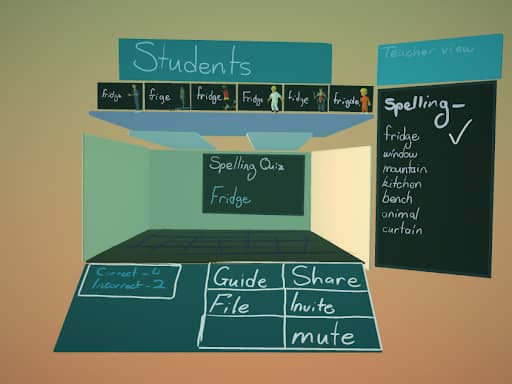 Students
Teacher view
fridge frige fridge Fridge fridge frigde
Spelling-
fridge
window
mountain
kitchen
bench
animal
curtain
Spelling Quiz
Fridge
Correct - 4
Incorrect - 2
Guide Share
File Invite
mute